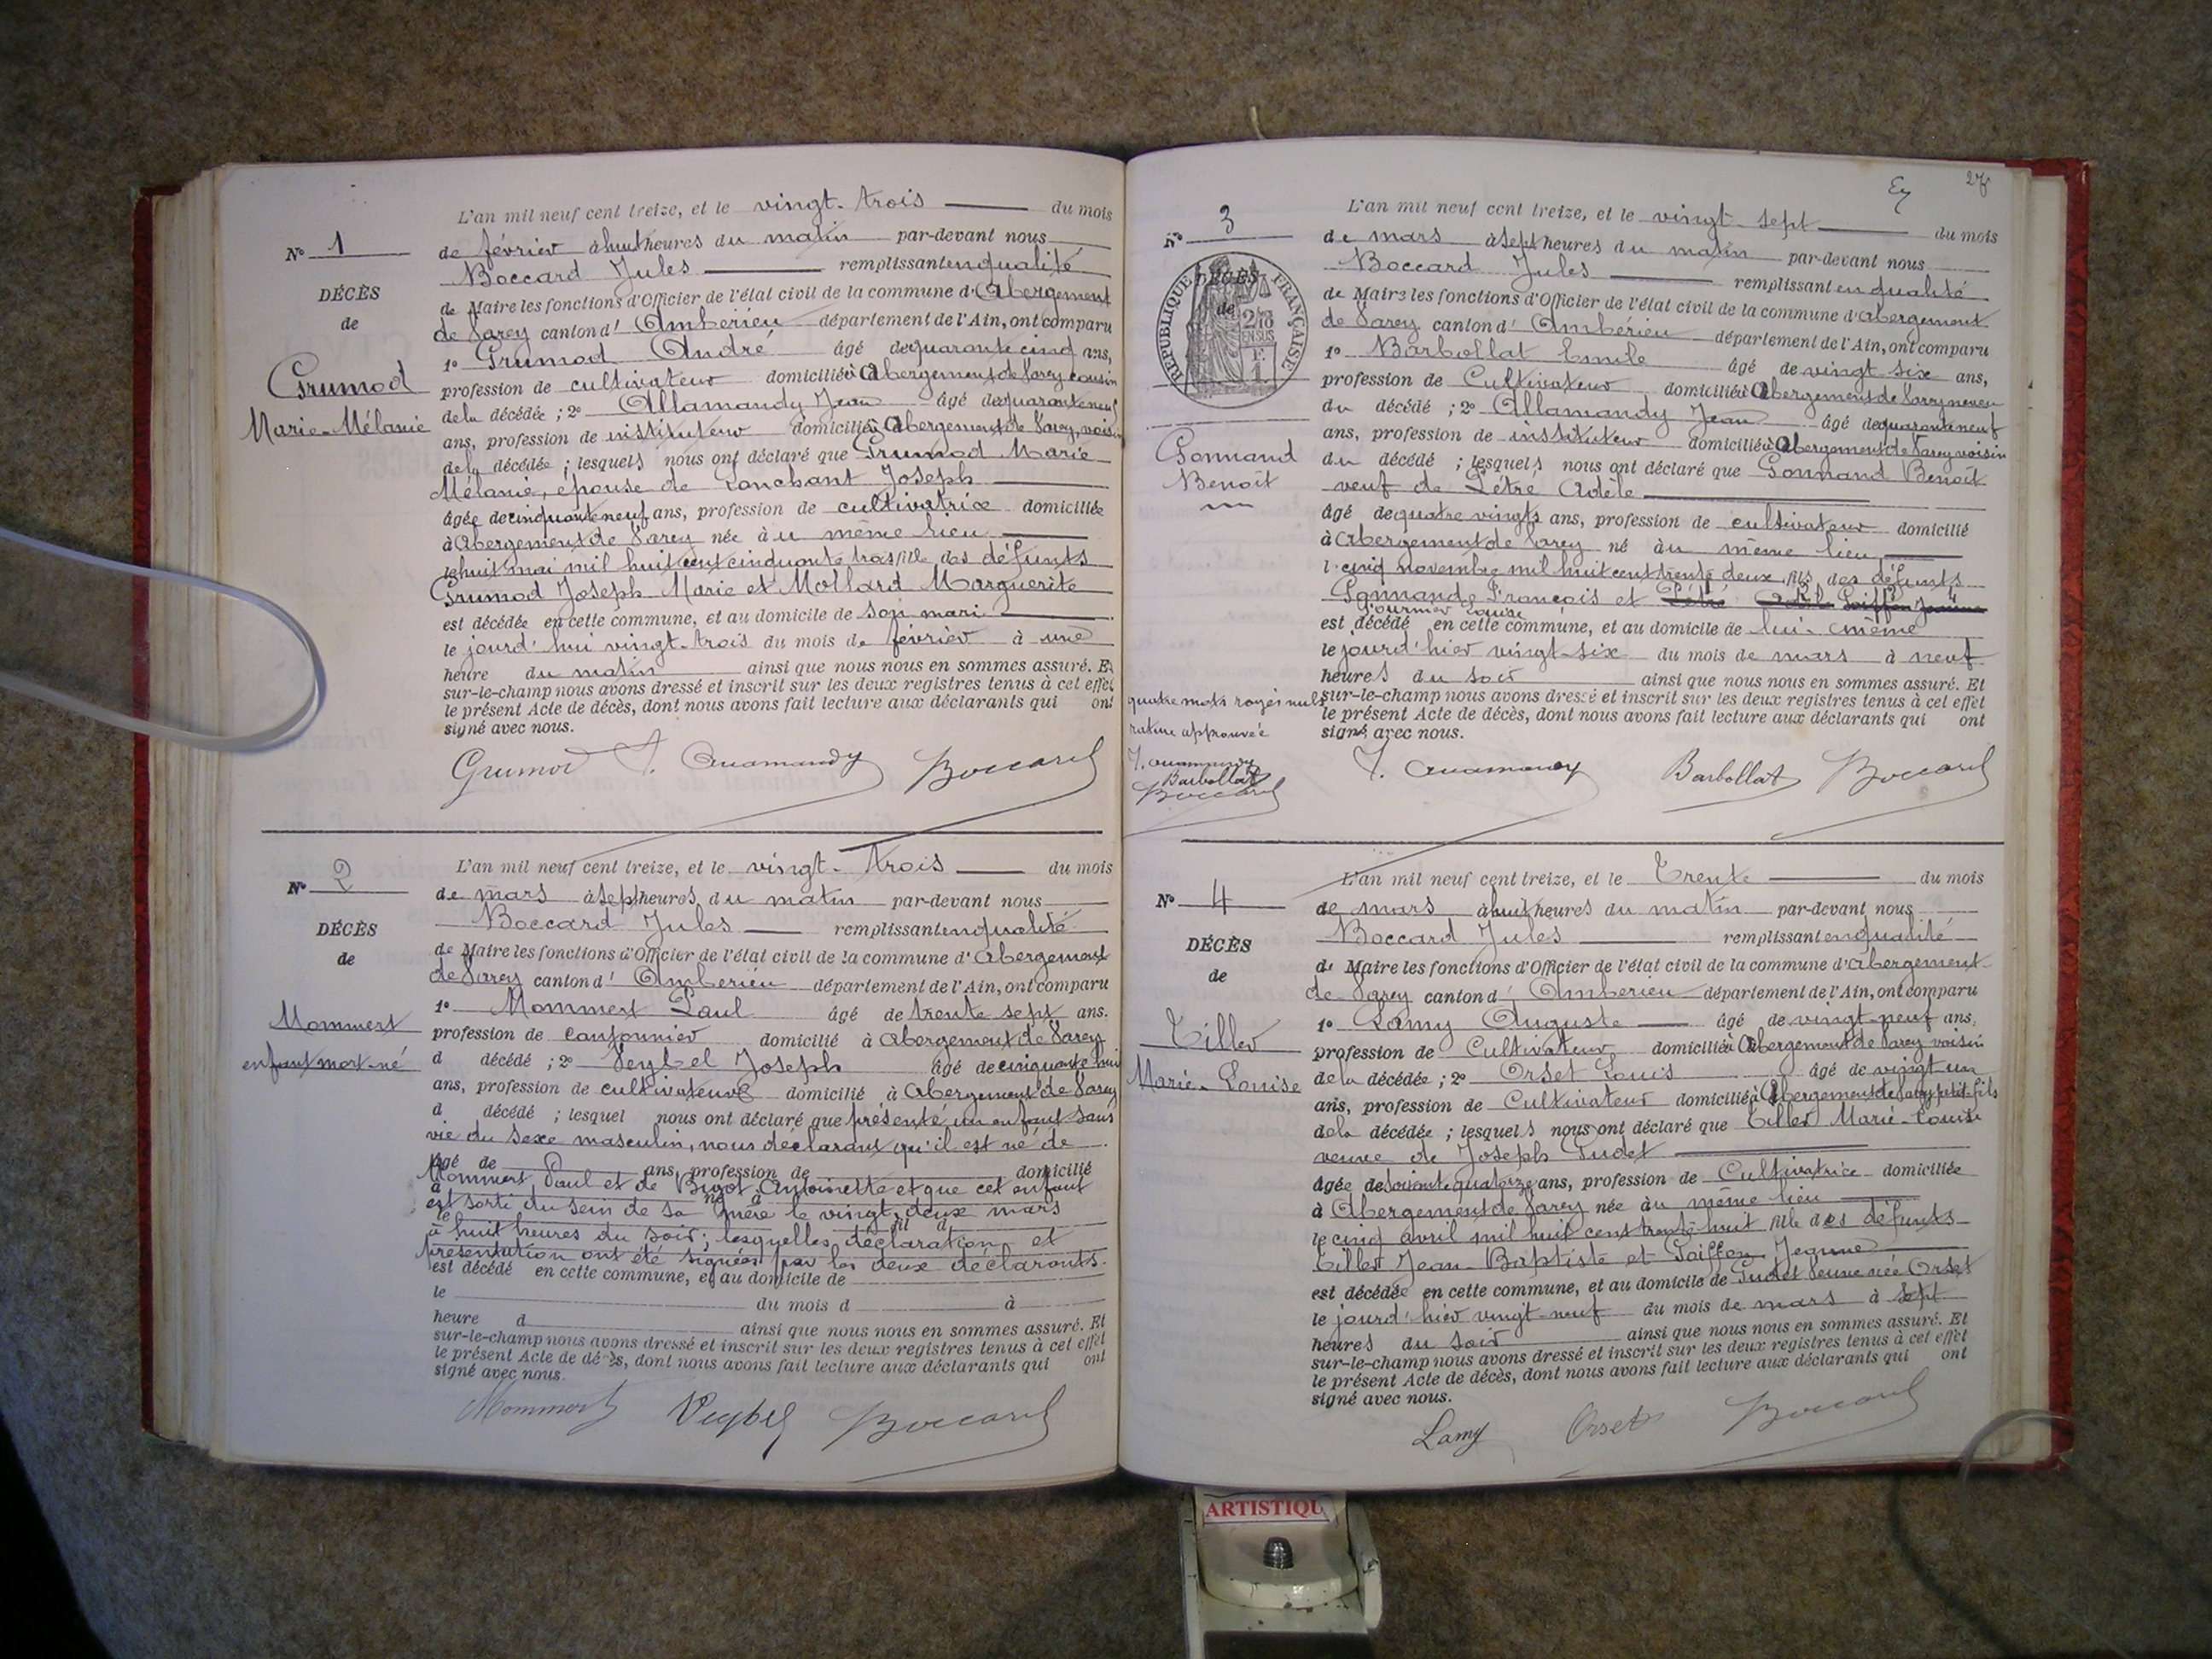 N° 1
DÉCÈS
de
Grumod
Marie-Mélanie
L'an mil neuf cent treize, et le vingt-trois du mois
de février à huit heures du matin par-devant nous
Boccard Jules remplissant en qualité
de Maire les fonctions d'Officier de l'état civil de la commune d'Abergement
de Varey canton d'Ambérieu département de l'Ain, ont comparu
1° Grumod André âgé de quarante cinq ans,
profession de cultivateur domicilié à Abergement de Varey cousin
de la décédée ; 2° Allamandy Jean âgé de quarante neuf
ans, profession de instituteur domicilié à Abergement de Varey, voisin
de la décédée ; lesquels nous ont déclaré que Grumod Marie
Mélanie, épouse de Lonchant Joseph
âgée de cinquante neuf ans, profession de cultivatrice domiciliée
à Abergement de Varey née à u même lieu
le huit mai mil huit cent cinquante trois fille des défunts
Grumod Joseph Marie et Mollard Marguerite
est décédée en cette commune, et au domicile de son mari
le jourd'hui vingt-trois du mois de février à une
heure du matin ainsi que nous nous en sommes assuré. Et
sur-le-champ nous avons dressé et inscrit sur les deux registres tenus à cet effet
le présent Acte de décès, dont nous avons fait lecture aux déclarants qui ont
signé avec nous.
Grumod J. Allamandy Boccard
N° 2
DÉCÈS
de
Mommert
enfant mort-né
L'an mil neuf cent treize, et le vingt-trois du mois
de mars à sept heures du matin par-devant nous
Boccard Jules remplissant en qualité
de Maire les fonctions d'Officier de l'état civil de la commune d'Abergement
de Varey canton d'Ambérieu département de l'Ain, ont comparu
1° Mommert Paul âgé de trente sept ans.
profession de cantonnier domicilié à Abergement de Varey
d décédé ; 2° Veybel Joseph âgé de cinquante huit
ans, profession de cultivateur domicilié à Abergement de Varey
d décédé ; lesquel nous ont déclaré que présenté un enfant sans
vie du sexe masculin, nous déclarant qu'il est né de
âgé de ans, profession de domicilié
Mommert Paul et de Bigot Antoinette et que cet enfant
à né à
est sorti du sein de sa mère le vingt-deux mars
le fil d
à huit heures du soir ; lesquelles déclaration et
présentation ont été signées par les deux déclarants.
est décédé en cette commune, et au domicile de
le du mois d à
heure d ainsi que nous nous en sommes assuré. Et
sur-le-champ nous avons dressé et inscrit sur les deux registres tenus à cet effet
le présent Acte de décès, dont nous avons fait lecture aux déclarants qui ont
signé avec nous.
Mommert Veybel Boccard
27
N° 3
RÉPUBLIQUE FRANÇAISE
DÉCÈS
de
Gonnand
Benoît
L'an mil neuf cent treize, et le vingt-sept du mois
de mars à sept heures du matin par-devant nous
Boccard Jules remplissant en qualité
de Maire les fonctions d'Officier de l'état civil de la commune d'Abergement
de Varey canton d'Ambérieu département de l'Ain, ont comparu
1° Barbollat Emile âgé de vingt six ans,
profession de Cultivateur domicilié à Abergement de Varey neveu
du décédé ; 2° Allamandy Jean âgé de quarante neuf
ans, profession de instituteur domicilié à Abergement de Varey voisin
du décédé ; lesquels nous ont déclaré que Gonnand Benoît
veuf de Létre Adèle
âgé de quatre vingts ans, profession de cultivateur domicilié
à Abergement de Varey né à u même lieu
l. cinq novembre mil huit cent trente deux fils des défunts
Gonnand François et Létré Adèle Poiffon Jeanne
Fournier Louise
est décédé en cette commune, et au domicile de lui-même
le jourd'hier vingt-six du mois de mars à neuf
heures du soir ainsi que nous nous en sommes assuré. Et
sur-le-champ nous avons dressé et inscrit sur les deux registres tenus à cet effet
le présent Acte de décès, dont nous avons fait lecture aux déclarants qui ont
signé avec nous.
quatre mots rayés nuls
rature approuvée
J. Allamandy
Barbollat
Boccard
J. Allamandy Barbollat Boccard
N° 4
DÉCÈS
de
Tiller
Marie-Louise
L'an mil neuf cent treize, et le Trente du mois
de mars à huit heures du matin par-devant nous
Boccard Jules remplissant en qualité
de Maire les fonctions d'Officier de l'état civil de la commune d'Abergement
de Varey canton d'Ambérieu département de l'Ain, ont comparu
1° Lamy Auguste âgé de vingt-neuf ans,
profession de Cultivateur domicilié à Abergement de Varey voisin
de la décédée ; 2° Orset Louis âgé de vingt un
ans, profession de Cultivateur domicilié à Abergement de Varey petit-fils
de la décédée ; lesquels nous ont déclaré que Tiller Marie-Louise
veuve de Joseph Pudet
âgée de soixante quatorze ans, profession de Cultivatrice domiciliée
à Abergement de Varey née à u même lieu
le cinq avril mil huit cent trente huit fille des défunts
Tiller Jean-Baptiste et Poiffon Jeanne
est décédée en cette commune, et au domicile de Pudet Veuve née Orset
le jourd'hier vingt-neuf du mois de mars à sept
heures du soir ainsi que nous nous en sommes assuré. Et
sur-le-champ nous avons dressé et inscrit sur les deux registres tenus à cet effet
le présent Acte de décès, dont nous avons fait lecture aux déclarants qui ont
signé avec nous.
Lamy Orset Boccard
ARTISTIQU